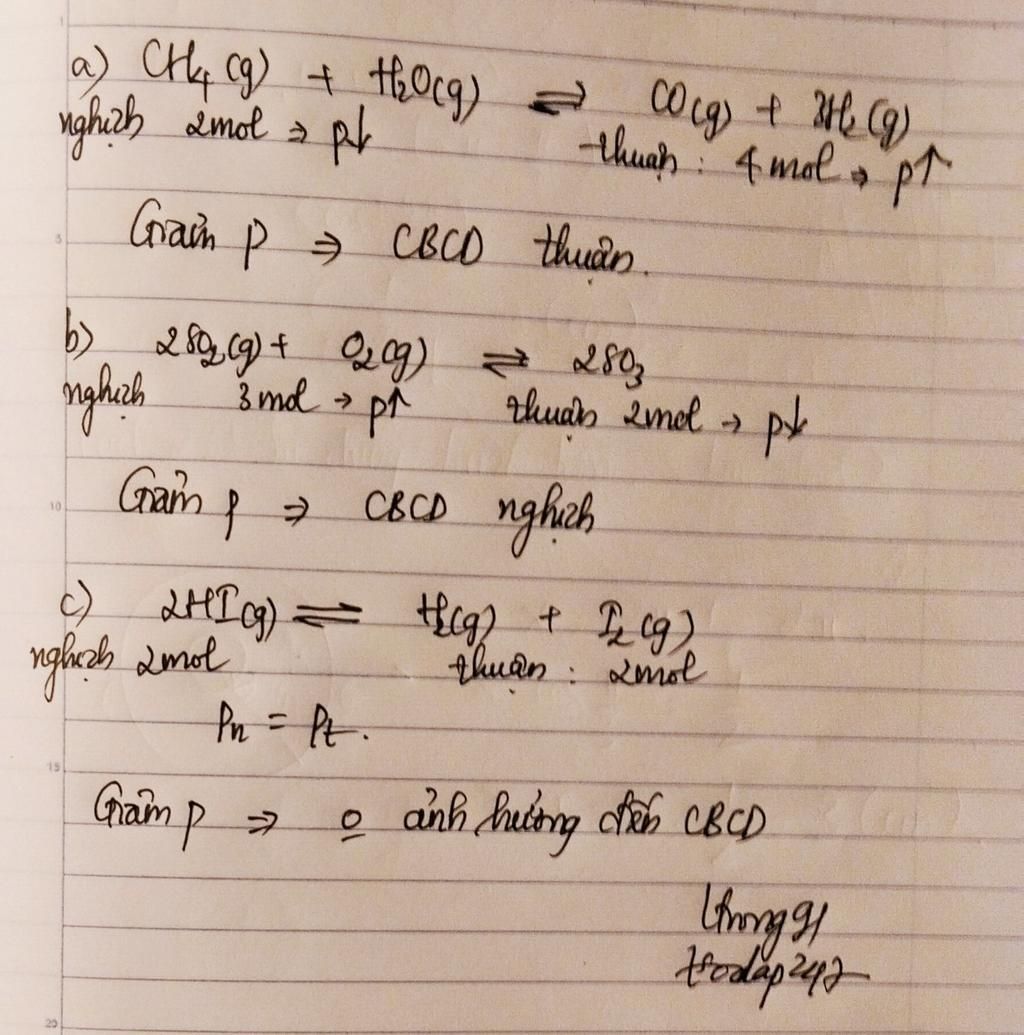 a) CH₄ (g) + H₂O(g) ⇌ CO(g) + 3H₂ (g)
nghịch 2mol ⇒ p↓ thuận : 4 mol → p↑
Giảm p ⇒ CBCD thuận.
b) 2SO₂(g) + O₂(g) ⇌ 2SO₃
nghịch 3mol → p↑ thuận 2mol → p↓
Giảm p ⇒ CBCD nghịch
c) 2HI(g) ⇌ H₂(g) + I₂ (g)
nghịch 2mol thuận : 2mol
Pn = Pt.
Giảm p ⇒ o ảnh hưởng đến CBCD